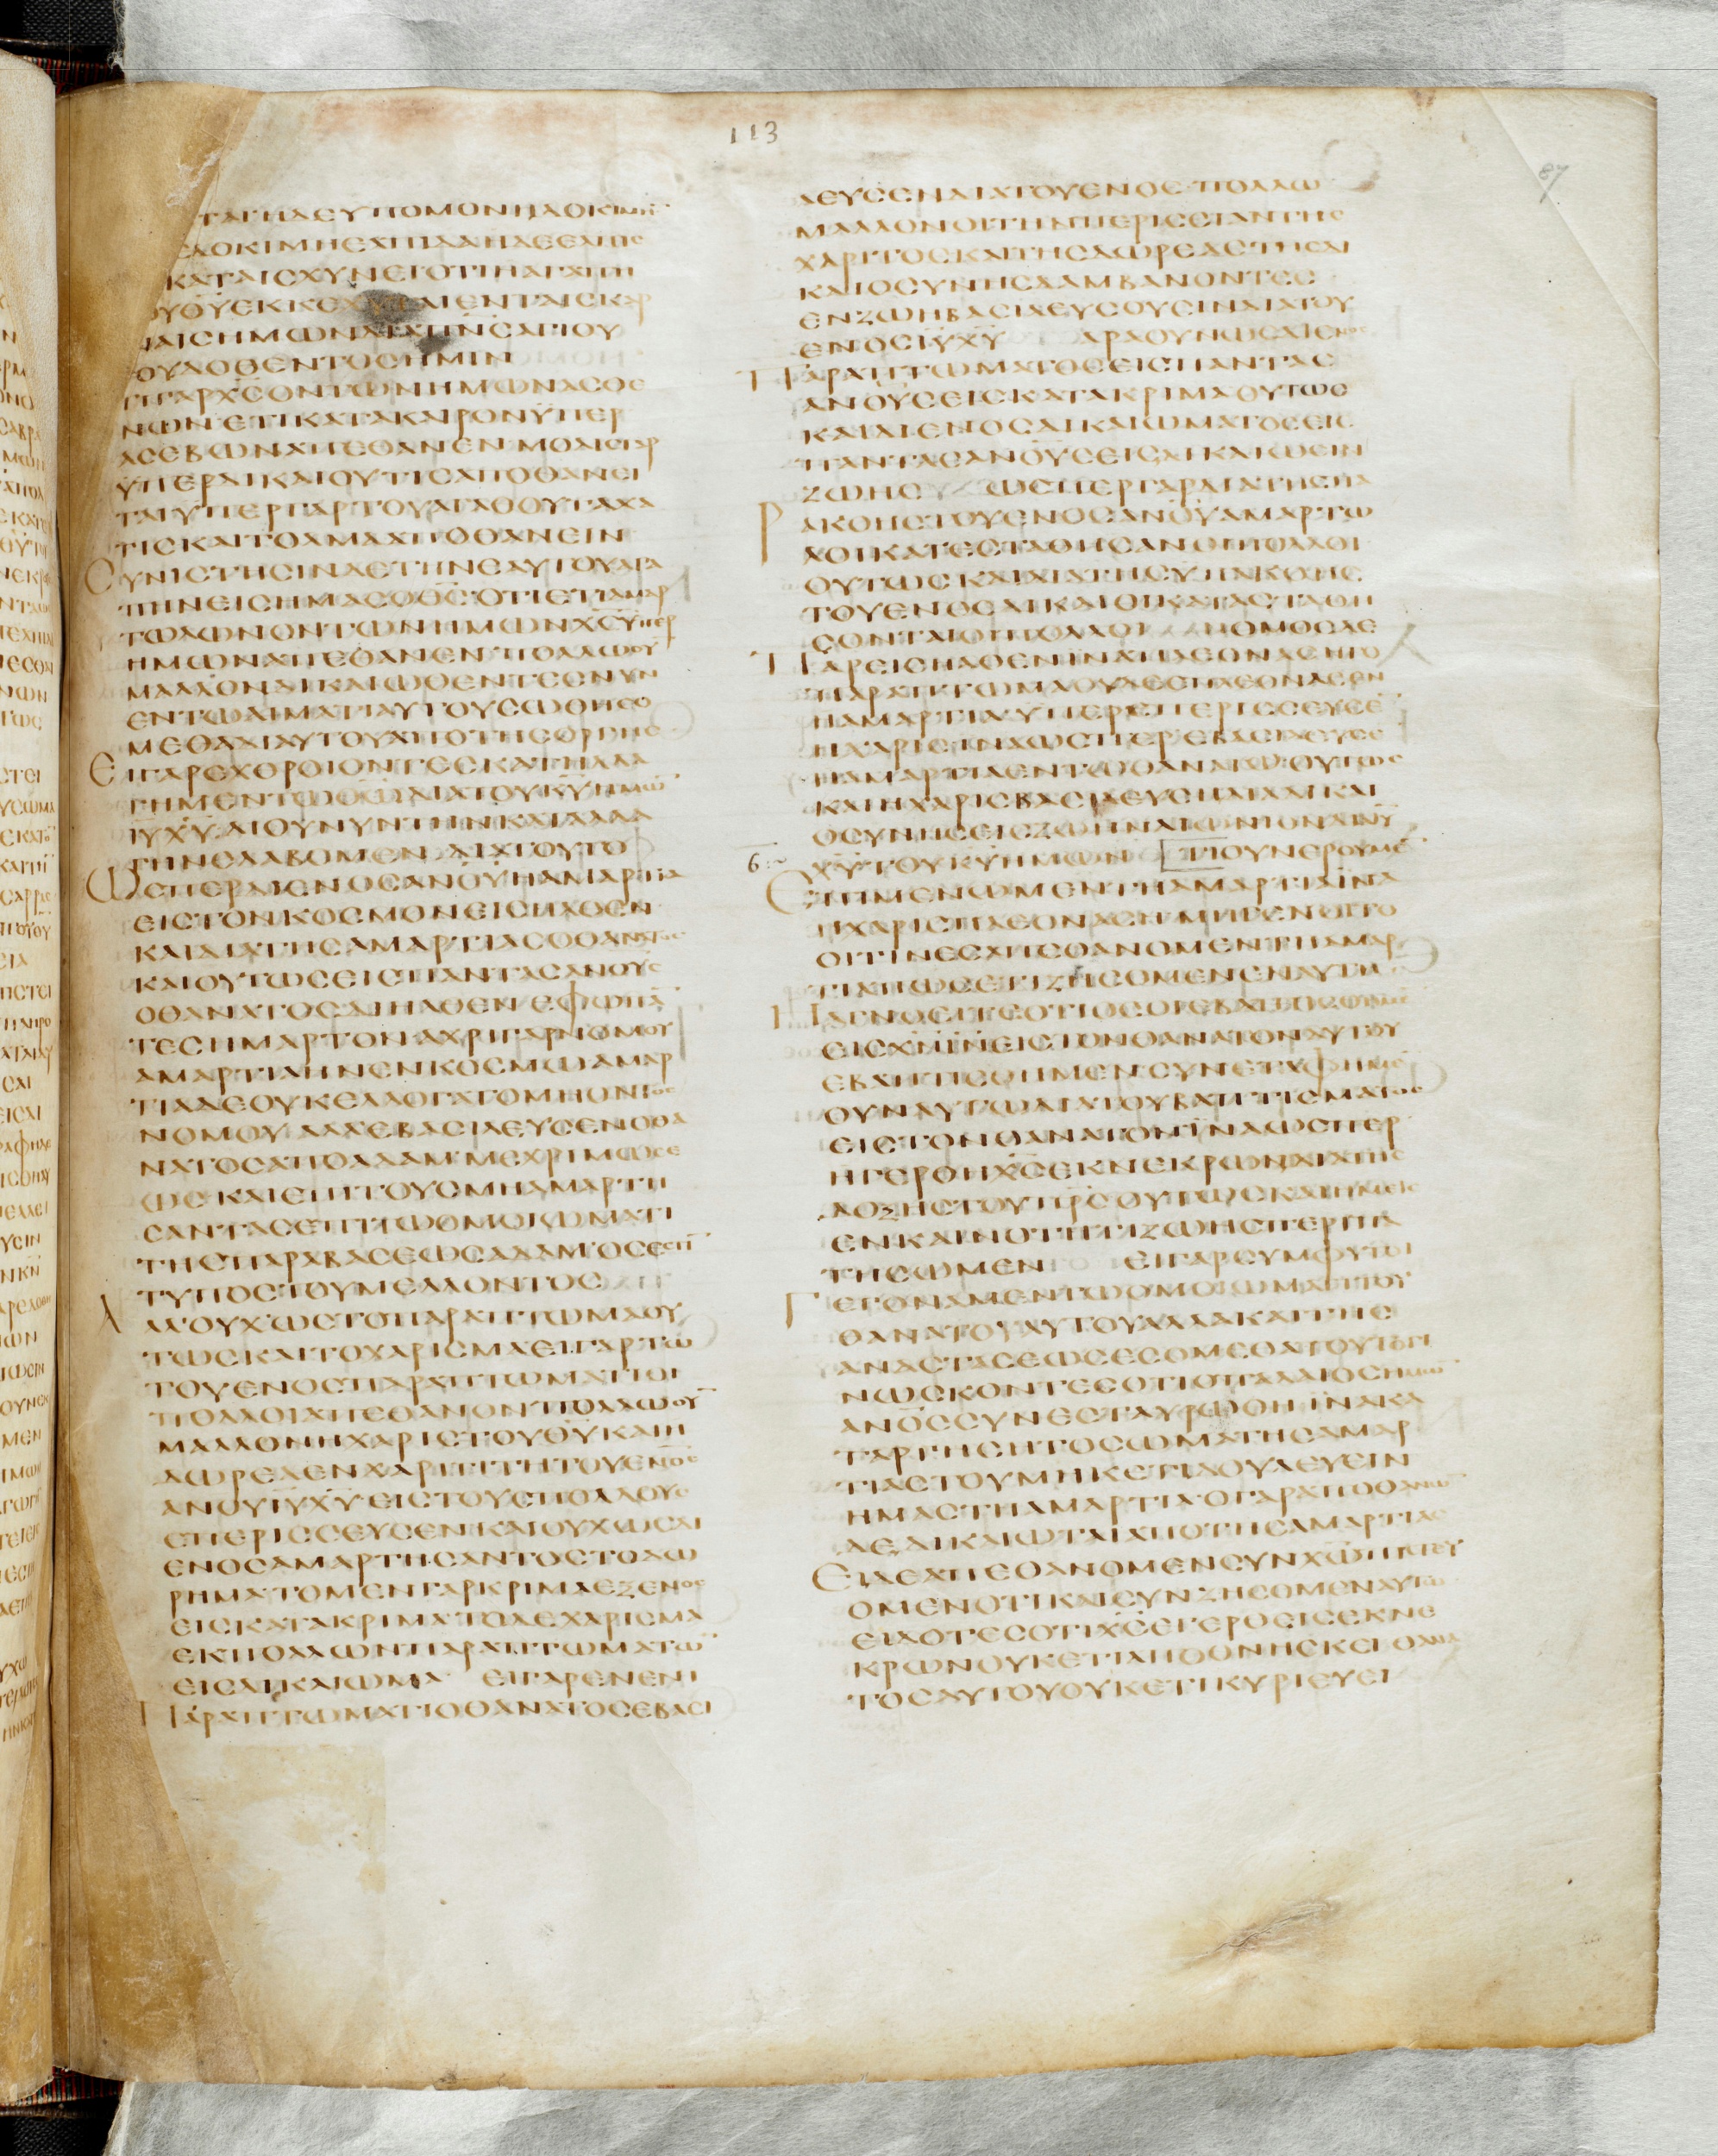 113
87
ΤΑΙ Η ΔΕ ΥΠΟΜΟΝΗ ΔΟΚΙΜΗΝ
ΔΟΚΙΜΗ ΕΛΠΙΔΑ Η ΔΕ ΕΛΠΙϹ
ΚΑΤΑΙϹΧΥΝΕΙ ΟΤΙ Η ΑΓΑΠΗ
ΟΥ ΘΥ ΕΚΚΕΧΥΤΑΙ ΕΝ ΤΑΙϹ ΚΑΡ
ΑΙϹ ΗΜΩΝ ΔΙΑ ΠΝϹ ΑΓΙΟΥ
ΟΥ ΔΟΘΕΝΤΟϹ ΗΜΙΝ
ΓΑΡ ΧϹ ΟΝΤΩΝ ΗΜΩΝ ΑϹΘΕ
ΝΩΝ ΕΤΙ ΚΑΤΑ ΚΑΙΡΟΝ ΥΠΕΡ
ΑϹΕΒΩΝ ΑΠΕΘΑΝΕΝ ΜΟΛΙϹ ΓΑΡ
ΥΠΕΡ ΔΙΚΑΙΟΥ ΤΙϹ ΑΠΟΘΑΝΕΙ
ΤΑΙ ΥΠΕΡ ΓΑΡ ΤΟΥ ΑΓΑΘΟΥ ΤΑΧΑ
ΤΙϹ ΚΑΙ ΤΟΛΜΑ ΑΠΟΘΑΝΕΙΝ
ϹΥΝΙϹΤΗϹΙΝ ΔΕ ΤΗΝ ΕΑΥΤΟΥ ΑΓΑ
ΠΗΝ ΕΙϹ ΗΜΑϹ Ο ΘϹ ΟΤΙ ΕΤΙ ΑΜΑΡ
ΤΩΛΩΝ ΟΝΤΩΝ ΗΜΩΝ ΧϹ ΥΠΕΡ
ΗΜΩΝ ΑΠΕΘΑΝΕΝ ΠΟΛΛΩ ΟΥ
ΜΑΛΛΟΝ ΔΙΚΑΙΩΘΕΝΤΕϹ ΝΥΝ
ΕΝ ΤΩ ΑΙΜΑΤΙ ΑΥΤΟΥ ϹΩΘΗϹΟ
ΜΕΘΑ ΔΙ ΑΥΤΟΥ ΑΠΟ ΤΗϹ ΟΡΓΗϹ
ΕΙ ΓΑΡ ΕΧΘΡΟΙ ΟΝΤΕϹ ΚΑΤΗΛΛΑ
ΓΗΜΕΝ ΤΩ ΘΩ ΔΙΑ ΤΟΥ ΚΥ ΗΜΩ
ΙΥ ΧΥ ΔΙ ΟΥ ΝΥΝ ΤΗΝ ΚΑΤΑΛΛΑ
ΓΗΝ ΕΛΑΒΟΜΕΝ ΔΙΑ ΤΟΥΤΟ
ΩϹΠΕΡ ΔΙ ΕΝΟϹ ΑΝΟΥ Η ΑΜΑΡΤΙΑ
ΕΙϹ ΤΟΝ ΚΟϹΜΟΝ ΕΙϹΗΛΘΕΝ
ΚΑΙ ΔΙΑ ΤΗϹ ΑΜΑΡΤΙΑϹ Ο ΘΑΝΑΤΟϹ
ΚΑΙ ΟΥΤΩϹ ΕΙϹ ΠΑΝΤΑϹ ΑΝΟΥϹ
Ο ΘΑΝΑΤΟϹ ΔΙΗΛΘΕΝ ΕΦ Ω ΠΑ
ΤΕϹ ΗΜΑΡΤΟΝ ΑΧΡΙ ΓΑΡ ΝΟΜΟΥ
ΑΜΑΡΤΙΑ ΗΝ ΕΝ ΚΟϹΜΩ ΑΜΑΡ
ΤΙΑ ΔΕ ΟΥΚ ΕΛΛΟΓΑΤΟ ΜΗ ΟΝΤΟϹ
ΝΟΜΟΥ ΑΛΛ ΕΒΑϹΙΛΕΥϹΕΝ Ο ΘΑ
ΝΑΤΟϹ ΑΠΟ ΑΔΑΜ ΜΕΧΡΙ ΜΩϹΕ
ΩϹ ΚΑΙ ΕΠΙ ΤΟΥϹ ΜΗ ΑΜΑΡΤΗ
ϹΑΝΤΑϹ ΕΠΙ ΤΩ ΟΜΟΙΩΜΑΤΙ
ΤΗϹ ΠΑΡΑΒΑϹΕΩϹ ΑΔΑΜ ΟϹ ΕϹΤΙ
ΤΥΠΟϹ ΤΟΥ ΜΕΛΛΟΝΤΟϹ
ΑΛΛ ΟΥΧ ΩϹ ΤΟ ΠΑΡΑΠΤΩΜΑ ΟΥ
ΤΩϹ ΚΑΙ ΤΟ ΧΑΡΙϹΜΑ ΕΙ ΓΑΡ ΤΩ
ΤΟΥ ΕΝΟϹ ΠΑΡΑΠΤΩΜΑΤΙ ΟΙ
ΠΟΛΛΟΙ ΑΠΕΘΑΝΟΝ ΠΟΛΛΩ ΟΥ
ΜΑΛΛΟΝ Η ΧΑΡΙϹ ΤΟΥ ΘΥ ΚΑΙ Η
ΔΩΡΕΑ ΕΝ ΧΑΡΙΤΙ ΤΗ ΤΟΥ ΕΝΟϹ
ΑΝΟΥ ΙΥ ΧΥ ΕΙϹ ΤΟΥϹ ΠΟΛΛΟΥϹ
ΕΠΕΡΙϹϹΕΥϹΕΝ ΚΑΙ ΟΥΧ ΩϹ ΔΙ
ΕΝΟϹ ΑΜΑΡΤΗϹΑΝΤΟϹ ΤΟ ΔΩ
ΡΗΜΑ ΤΟ ΜΕΝ ΓΑΡ ΚΡΙΜΑ ΕΞ ΕΝΟϹ
ΕΙϹ ΚΑΤΑΚΡΙΜΑ ΤΟ ΔΕ ΧΑΡΙϹΜΑ
ΕΚ ΠΟΛΛΩΝ ΠΑΡΑΠΤΩΜΑΤΩ
ΕΙϹ ΔΙΚΑΙΩΜΑ ΕΙ ΓΑΡ ΕΝ ΕΝΙ
ΠΑΡΑΠΤΩΜΑΤΙ Ο ΘΑΝΑΤΟϹ ΕΒΑϹΙ
ΛΕΥϹΕΝ ΔΙΑ ΤΟΥ ΕΝΟϹ ΠΟΛΛΩ
ΜΑΛΛΟΝ ΟΙ ΤΗΝ ΠΕΡΙϹϹΙΑΝ ΤΗϹ
ΧΑΡΙΤΟϹ ΚΑΙ ΤΗϹ ΔΩΡΕΑϹ ΤΗϹ ΔΙ
ΚΑΙΟϹΥΝΗϹ ΛΑΜΒΑΝΟΝΤΕϹ
ΕΝ ΖΩΗ ΒΑϹΙΛΕΥϹΟΥϹΙΝ ΔΙΑ ΤΟΥ
ΕΝΟϹ ΙΥ ΧΥ ΑΡΑ ΟΥΝ ΩϹ ΔΙ ΕΝΟϹ
ΠΑΡΑΠΤΩΜΑΤΟϹ ΕΙϹ ΠΑΝΤΑϹ
ΑΝΟΥϹ ΕΙϹ ΚΑΤΑΚΡΙΜΑ ΟΥΤΩϹ
ΚΑΙ ΔΙ ΕΝΟϹ ΔΙΚΑΙΩΜΑΤΟϹ ΕΙϹ
ΠΑΝΤΑϹ ΑΝΟΥϹ ΕΙϹ ΔΙΚΑΙΩϹΙΝ
ΖΩΗϹ ΩϹΠΕΡ ΓΑΡ ΔΙΑ ΤΗϹ ΠΑ
ΡΑΚΟΗϹ ΤΟΥ ΕΝΟϹ ΑΝΟΥ ΑΜΑΡΤΩ
ΛΟΙ ΚΑΤΕϹΤΑΘΗϹΑΝ ΟΙ ΠΟΛΛΟΙ
ΟΥΤΩϹ ΚΑΙ ΔΙΑ ΤΗϹ ΥΠΑΚΟΗϹ
ΤΟΥ ΕΝΟϹ ΔΙΚΑΙΟΙ ΚΑΤΑϹΤΑΘΗ
ϹΟΝΤΑΙ ΟΙ ΠΟΛΛΟΙ ΝΟΜΟϹ ΔΕ
ΠΑΡΕΙϹΗΛΘΕΝ ΙΝΑ ΠΛΕΟΝΑϹΗ ΤΟ
ΠΑΡΑΠΤΩΜΑ ΟΥ ΔΕ ϹΠΛΕΟΝΑϹΕΝ
Η ΑΜΑΡΤΙΑ ΥΠΕΡΕΠΕΡΙϹϹΕΥϹΕ
Η ΧΑΡΙϹ ΙΝΑ ΩϹΠΕΡ ΕΒΑϹΙΛΕΥϹΕ
Η ΑΜΑΡΤΙΑ ΕΝ ΤΩ ΘΑΝΑΤΩ ΟΥΤΩϹ
ΚΑΙ Η ΧΑΡΙϹ ΒΑϹΙΛΕΥϹΗ ΔΙΑ ΔΙΚΑΙ
ΟϹΥΝΗϹ ΕΙϹ ΖΩΗΝ ΑΙΩΝΙΟΝ ΔΙΑ ΙΥ
ΧΥ ΤΟΥ ΚΥ ΗΜΩΝ ΤΙ ΟΥΝ ΕΡΟΥΜΕ
6
ΕΠΙΜΕΝΩΜΕΝ ΤΗ ΑΜΑΡΤΙΑ ΙΝΑ
Η ΧΑΡΙϹ ΠΛΕΟΝΑϹΗ ΜΗ ΓΕΝΟΙΤΟ
ΟΙΤΙΝΕϹ ΑΠΕΘΑΝΟΜΕΝ ΤΗ ΑΜΑΡ
ΤΙΑ ΠΩϹ ΕΤΙ ΖΗϹΟΜΕΝ ΕΝ ΑΥΤΗ
Η ΑΓΝΟΕΙΤΕ ΟΤΙ ΟϹΟΙ ΕΒΑΠΤΙϹΘΗΜΕ
ΕΙϹ ΧΝ ΙΝ ΕΙϹ ΤΟΝ ΘΑΝΑΤΟΝ ΑΥΤΟΥ
ΕΒΑΠΤΙϹΘΗΜΕΝ ϹΥΝΕΤΑΦΗΜΕ
ΟΥΝ ΑΥΤΩ ΔΙΑ ΤΟΥ ΒΑΠΤΙϹΜΑΤΟϹ
ΕΙϹ ΤΟΝ ΘΑΝΑΤΟΝ ΙΝΑ ΩϹΠΕΡ
ΗΓΕΡΘΗ ΧϹ ΕΚ ΝΕΚΡΩΝ ΔΙΑ ΤΗϹ
ΔΟΞΗϹ ΤΟΥ ΠΡϹ ΟΥΤΩϹ ΚΑΙ ΗΜΕΙϹ
ΕΝ ΚΑΙΝΟΤΗΤΙ ΖΩΗϹ ΠΕΡΙΠΑ
ΤΗϹΩΜΕΝ ΕΙ ΓΑΡ ϹΥΜΦΥΤΟΙ
ΓΕΓΟΝΑΜΕΝ ΤΩ ΟΜΟΙΩΜΑΤΙ ΤΟΥ
ΘΑΝΑΤΟΥ ΑΥΤΟΥ ΑΛΛΑ ΚΑΙ ΤΗϹ
ΑΝΑϹΤΑϹΕΩϹ ΕϹΟΜΕΘΑ ΤΟΥΤΟ ΓΙ
ΝΩϹΚΟΝΤΕϹ ΟΤΙ Ο ΠΑΛΑΙΟϹ ΗΜΩ
ΑΝΟϹ ϹΥΝΕϹΤΑΥΡΩΘΗ ΙΝΑ ΚΑ
ΤΑΡΓΗϹΗ ΤΟ ϹΩΜΑ ΤΗϹ ΑΜΑΡ
ΤΙΑϹ ΤΟΥ ΜΗΚΕΤΙ ΔΟΥΛΕΥΕΙΝ
ΗΜΑϹ ΤΗ ΑΜΑΡΤΙΑ Ο ΓΑΡ ΑΠΟΘΑΝΩ
ΔΕΔΙΚΑΙΩΤΑΙ ΑΠΟ ΤΗϹ ΑΜΑΡΤΙΑϹ
ΕΙ ΔΕ ΑΠΕΘΑΝΟΜΕΝ ϹΥΝ ΧΩ ΠΙϹΤΕΥ
ΟΜΕΝ ΟΤΙ ΚΑΙ ϹΥΝΖΗϹΟΜΕΝ ΑΥΤΩ
ΕΙΔΟΤΕϹ ΟΤΙ ΧϹ ΕΓΕΡΘΕΙϹ ΕΚ ΝΕ
ΚΡΩΝ ΟΥΚΕΤΙ ΑΠΟΘΝΗϹΚΕΙ ΘΑΝΑ
ΤΟϹ ΑΥΤΟΥ ΟΥΚΕΤΙ ΚΥΡΙΕΥΕΙ